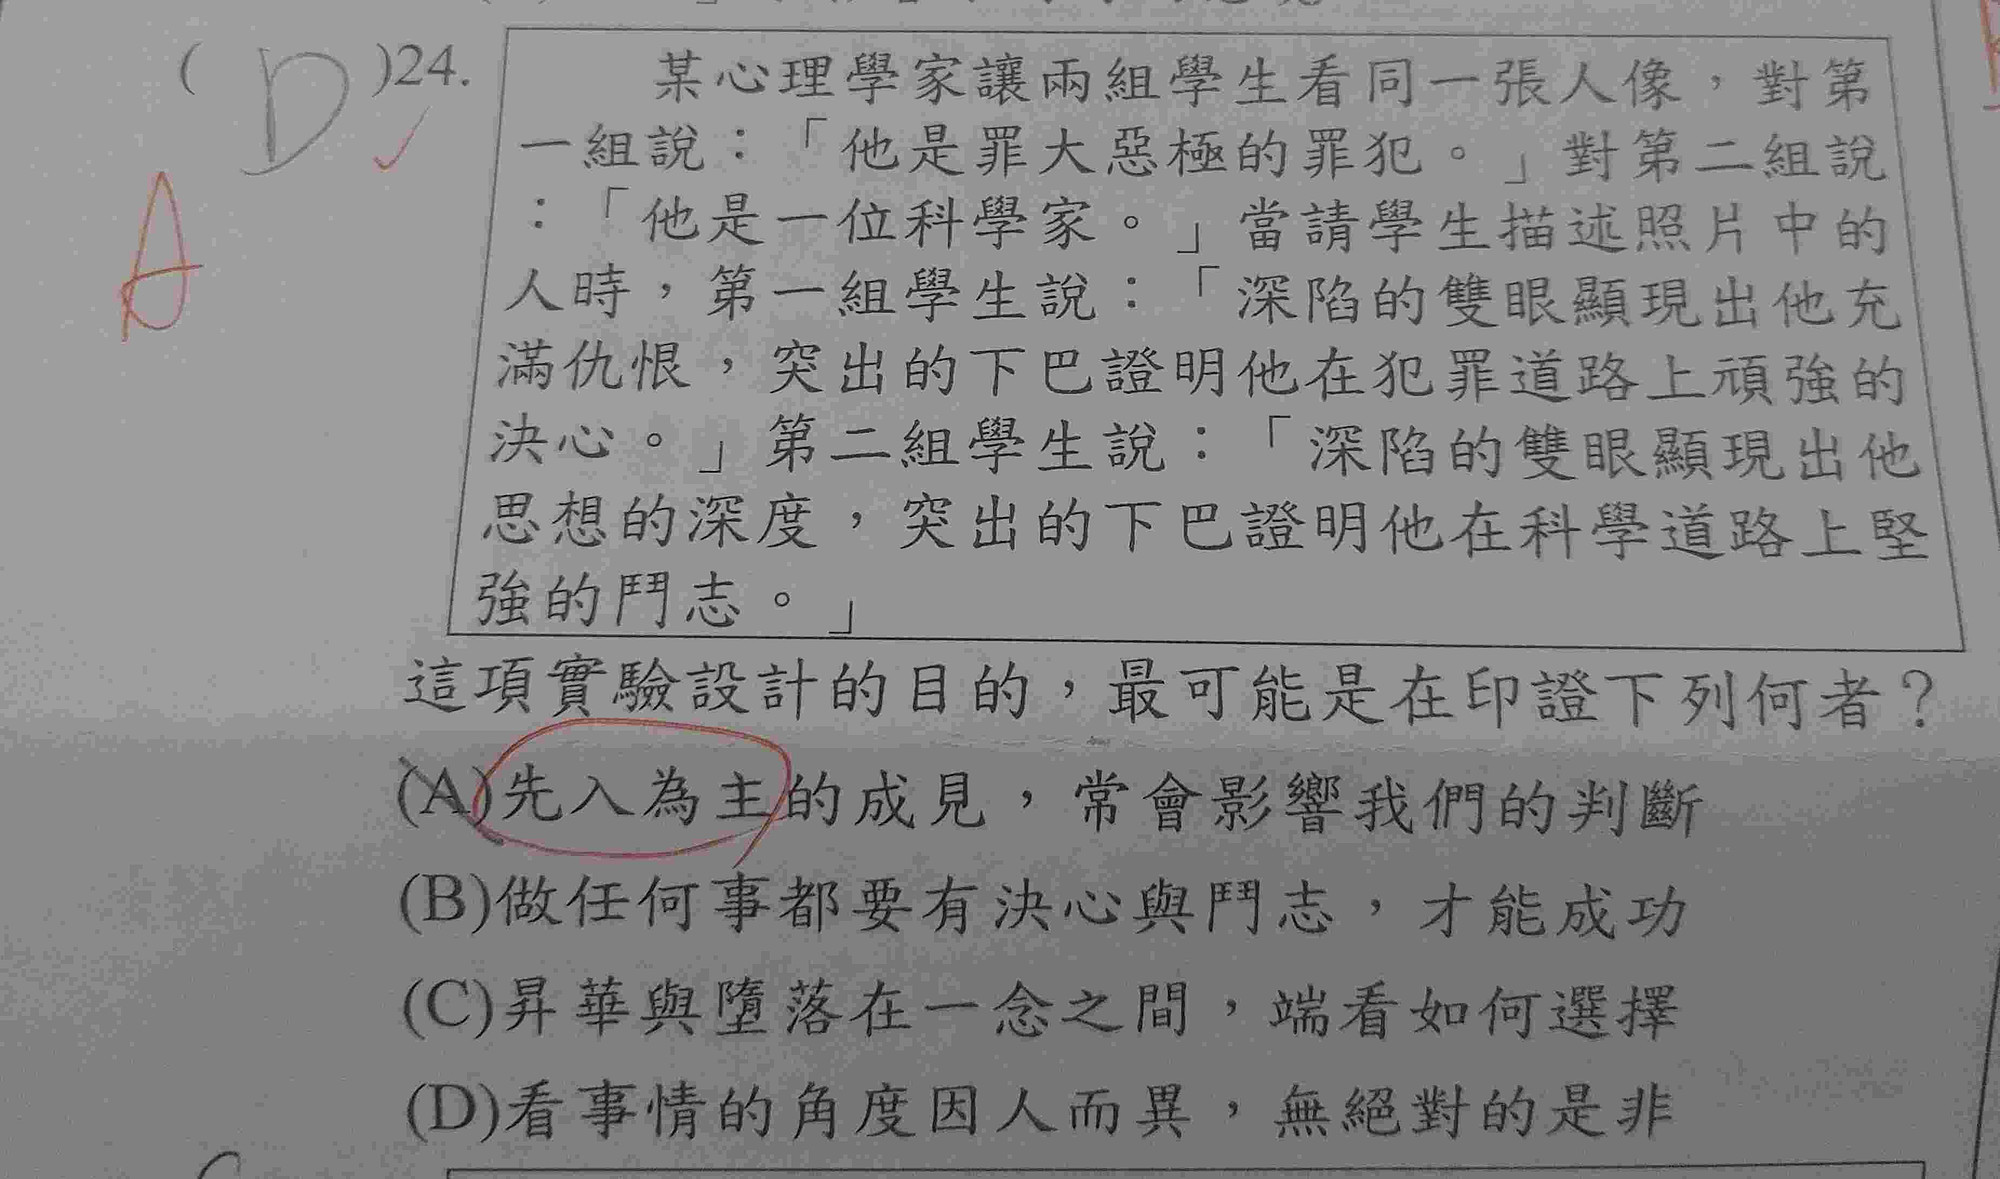 ( D )24.
某心理學家讓兩組學生看同一張人像，對第
一組說：「他是罪大惡極的罪犯。」對第二組說
：「他是一位科學家。」當請學生描述照片中的
人時，第一組學生說：「深陷的雙眼顯現出他充
滿仇恨，突出的下巴證明他在犯罪道路上頑強的
決心。」第二組學生說：「深陷的雙眼顯現出他
思想的深度，突出的下巴證明他在科學道路上堅
強的鬥志。」
A
這項實驗設計的目的，最可能是在印證下列何者？
(A)先入為主的成見，常會影響我們的判斷
(B)做任何事都要有決心與鬥志，才能成功
(C)昇華與墮落在一念之間，端看如何選擇
(D)看事情的角度因人而異，無絕對的是非